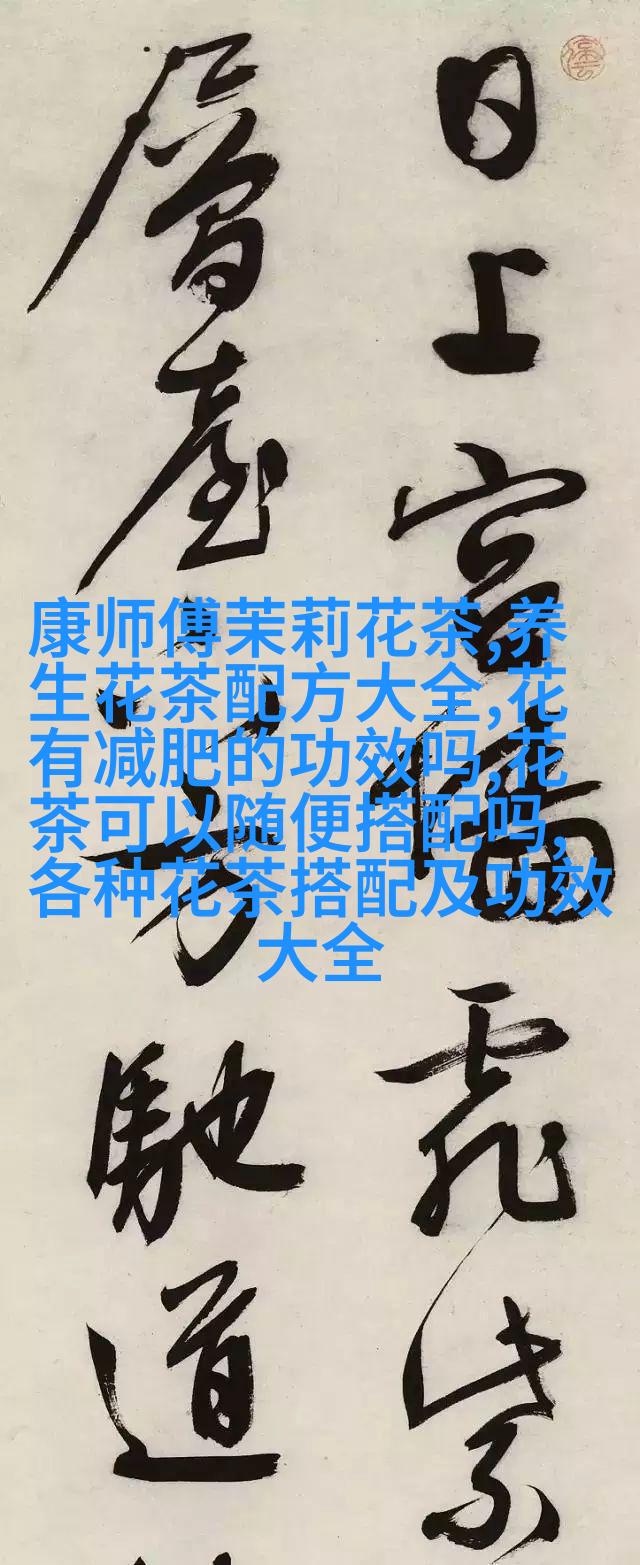 日上宮墻飛紫
層臺下方馳道
康师傅茉莉花茶,养
生花茶配方大全,花
有减肥的功效吗,花
茶可以随便搭配吗,
各种花茶搭配及功效
大全